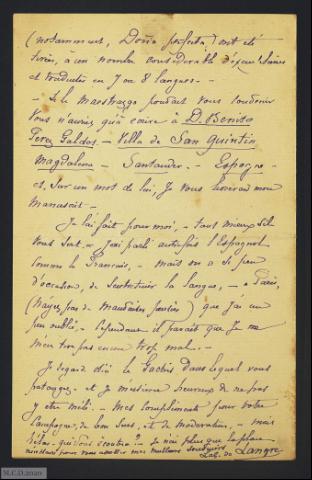 (notamment, Doña perfecta) ont été
tirés, à un nombre considérable d'exemplaires
et traduits en 7 ou 8 langues. —
— Si le maestrazgo pouvait vous convenir
Vous n'auriez qu'à écrire à D. Benito
Perez Galdos — Villa de San Quintin
Magdalena — Santander — Espagne —
et, sur un mot de lui, je vous livrerai mon
Manuscrit —
Je l'ai fait pour moi, — tant mieux s'il
vous sert. — J'ai parlé autrefois l'Espagnol
comme le Français, — mais on a si peu
d'occasion, de la langue, — à Paris,
(N'ayez pas de mauvaises pensées) que j'ai un
peu oublié. — Cependant il parait que je ne
m'en tire pas encore trop mal. —
Je regard d'ici le Gachis dans lequel vous
pataugez — et je m'estime heureux de ne pas
y être mêlé. — Mes compliments pour votre
Campagne, de bon sens, et de modération, — mais
hélas — qui vous écoutera? — Je n'ai plus que la place
pour vous mes meilleurs souvenirs
de Langre
M.C.D. 2020